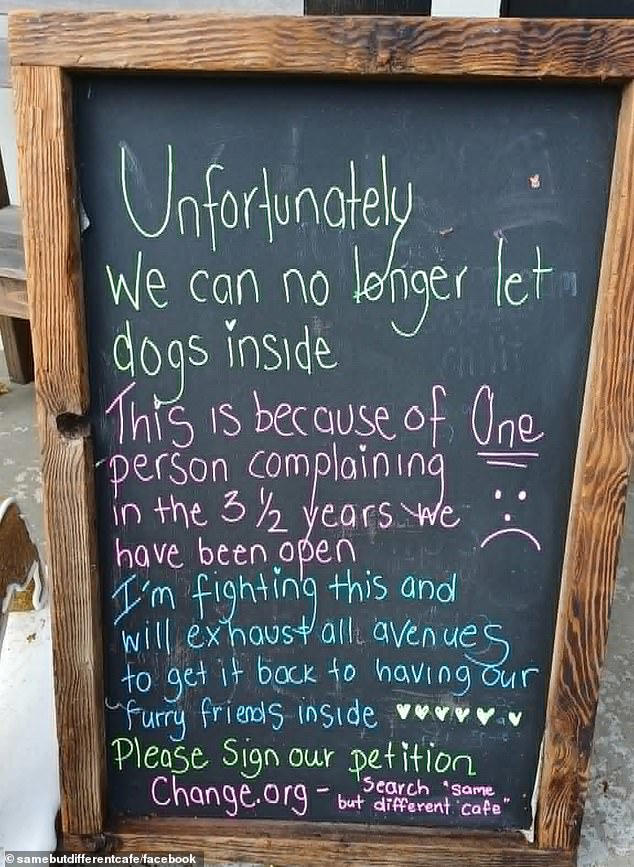 Unfortunately
We can no longer let
dogs inside
This is because of One
person complaining
in the 3 ½ years we
have been open
I'm fighting this and
will exhaust all avenues
to get it back to having our
furry friends inside
Please Sign our petition
Change.org - Search "same
but different cafe"
© samebutdifferentcafe/facebook